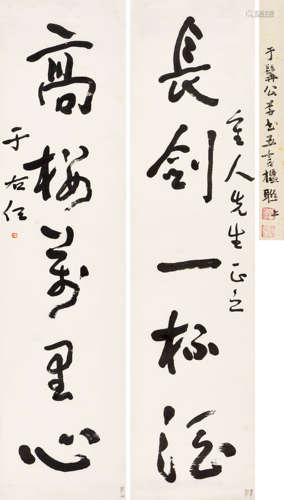 于髯公草書五言楹聯
長劍一杯酒
人先生正之
高樓萬里心
于右任